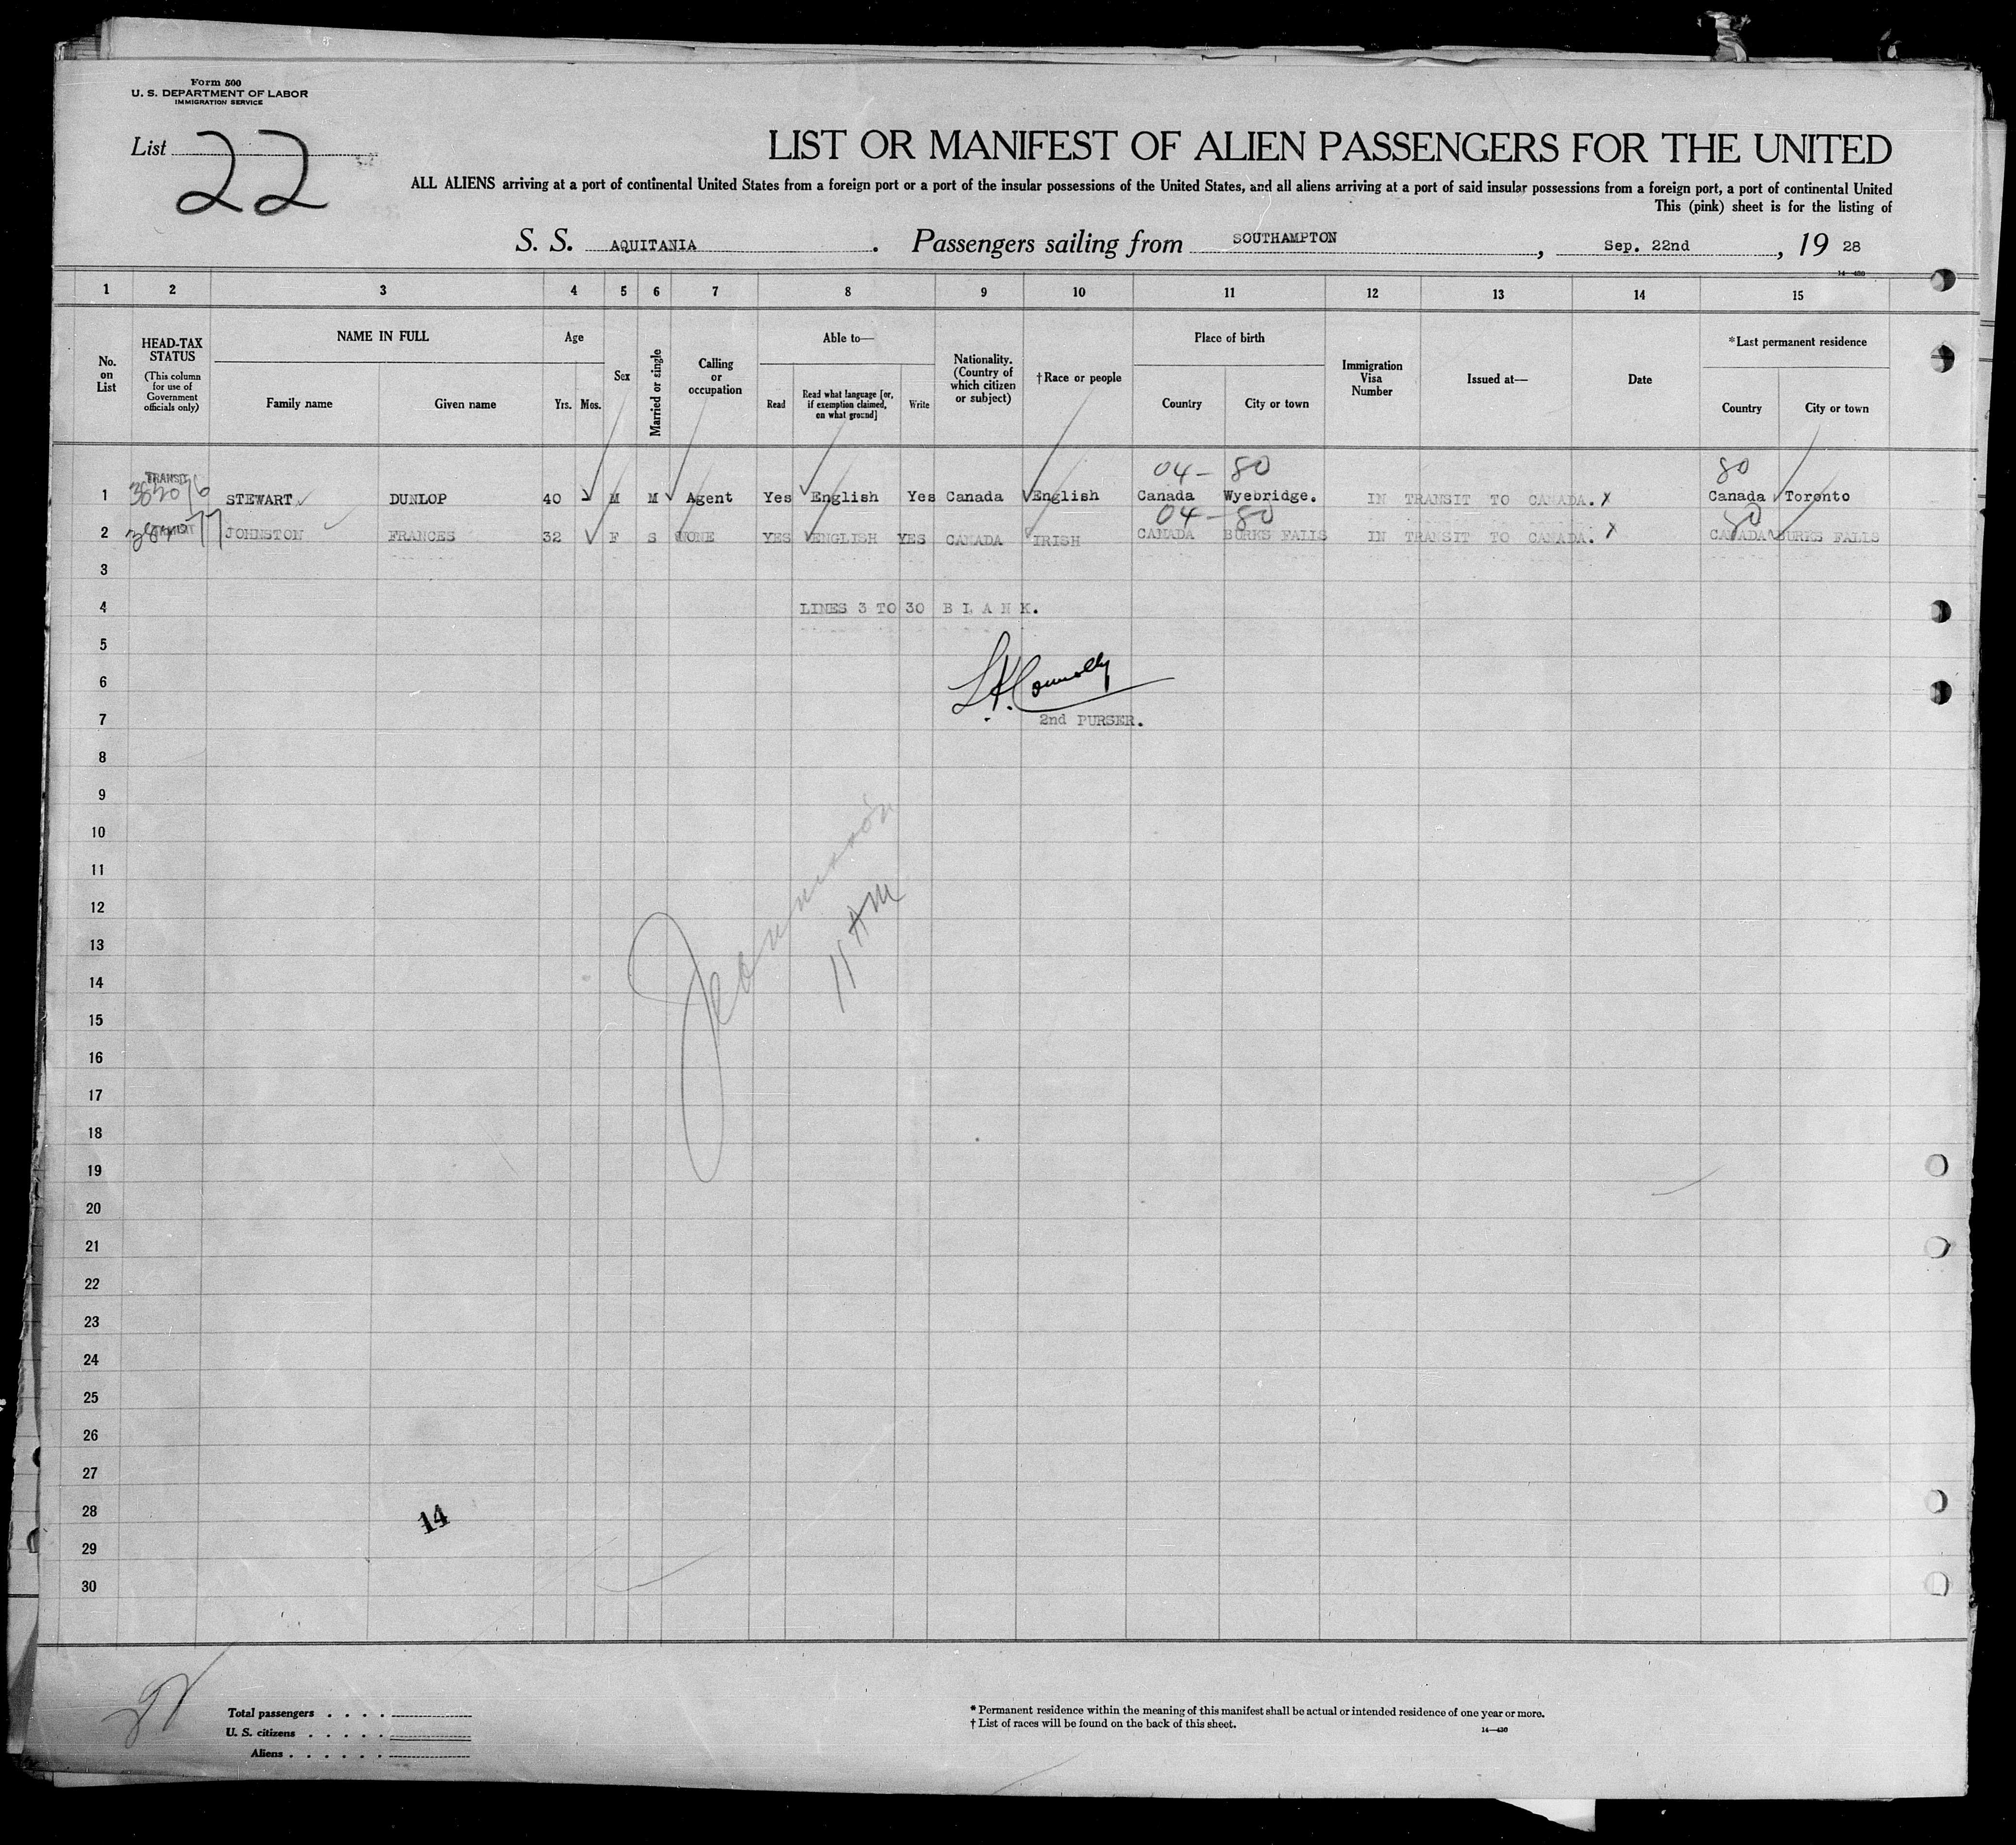 Form 500
U. S. DEPARTMENT OF LABOR
IMMIGRATION SERVICE
List 22
LIST OR MANIFEST OF ALIEN PASSENGERS FOR THE UNITED
ALL ALIENS arriving at a port of continental United States from a foreign port or a port of the insular possessions of the United States, and all aliens arriving at a port of said insular possessions from a foreign port, a port of continental United
This (pink) sheet is for the listing of
S. S. AQUITANIA. Passengers sailing from SOUTHAMPTON, Sep. 22nd, 19 28
14—430
1 2 3 4 5 6 7 8 9 10 11 12 13 14 15
No. on List
HEAD-TAX STATUS
(This column for use of Government officials only)
NAME IN FULL
Family name Given name
Age
Yrs. Mos.
Sex
Married or single
Calling or occupation
Able to—
Read
Read what language [or, if exemption claimed, on what ground]
Write
Nationality. (Country of which citizen or subject)
†Race or people
Place of birth
Country City or town
Immigration Visa Number
Issued at—
Date
*Last permanent residence
Country City or town
TRANSIT 04- 80 80
1 STEWART DUNLOP 40 M M Agent Yes English Yes Canada English Canada Wyebridge. IN TRANSIT TO CANADA. X Canada Toronto
04-80 80
2 TRANSIT JOHNSTON FRANCES 32 F S NONE YES ENGLISH YES CANADA IRISH CANADA BURKS FALLS IN TRANSIT TO CANADA. X CANADA BURKS FALLS
3
4 LINES 3 TO 30 BLANK.
5
6 Connolly
7 2nd PURSER.
8
9
10
11
12
13 11 AM
14
15
16
17
18
19
20
21
22
23
24
25
26
27
28 14
29
30
Total passengers . . . .
U. S. citizens . . . . .
Aliens . . . . . .
* Permanent residence within the meaning of this manifest shall be actual or intended residence of one year or more.
† List of races will be found on the back of this sheet.
14—430